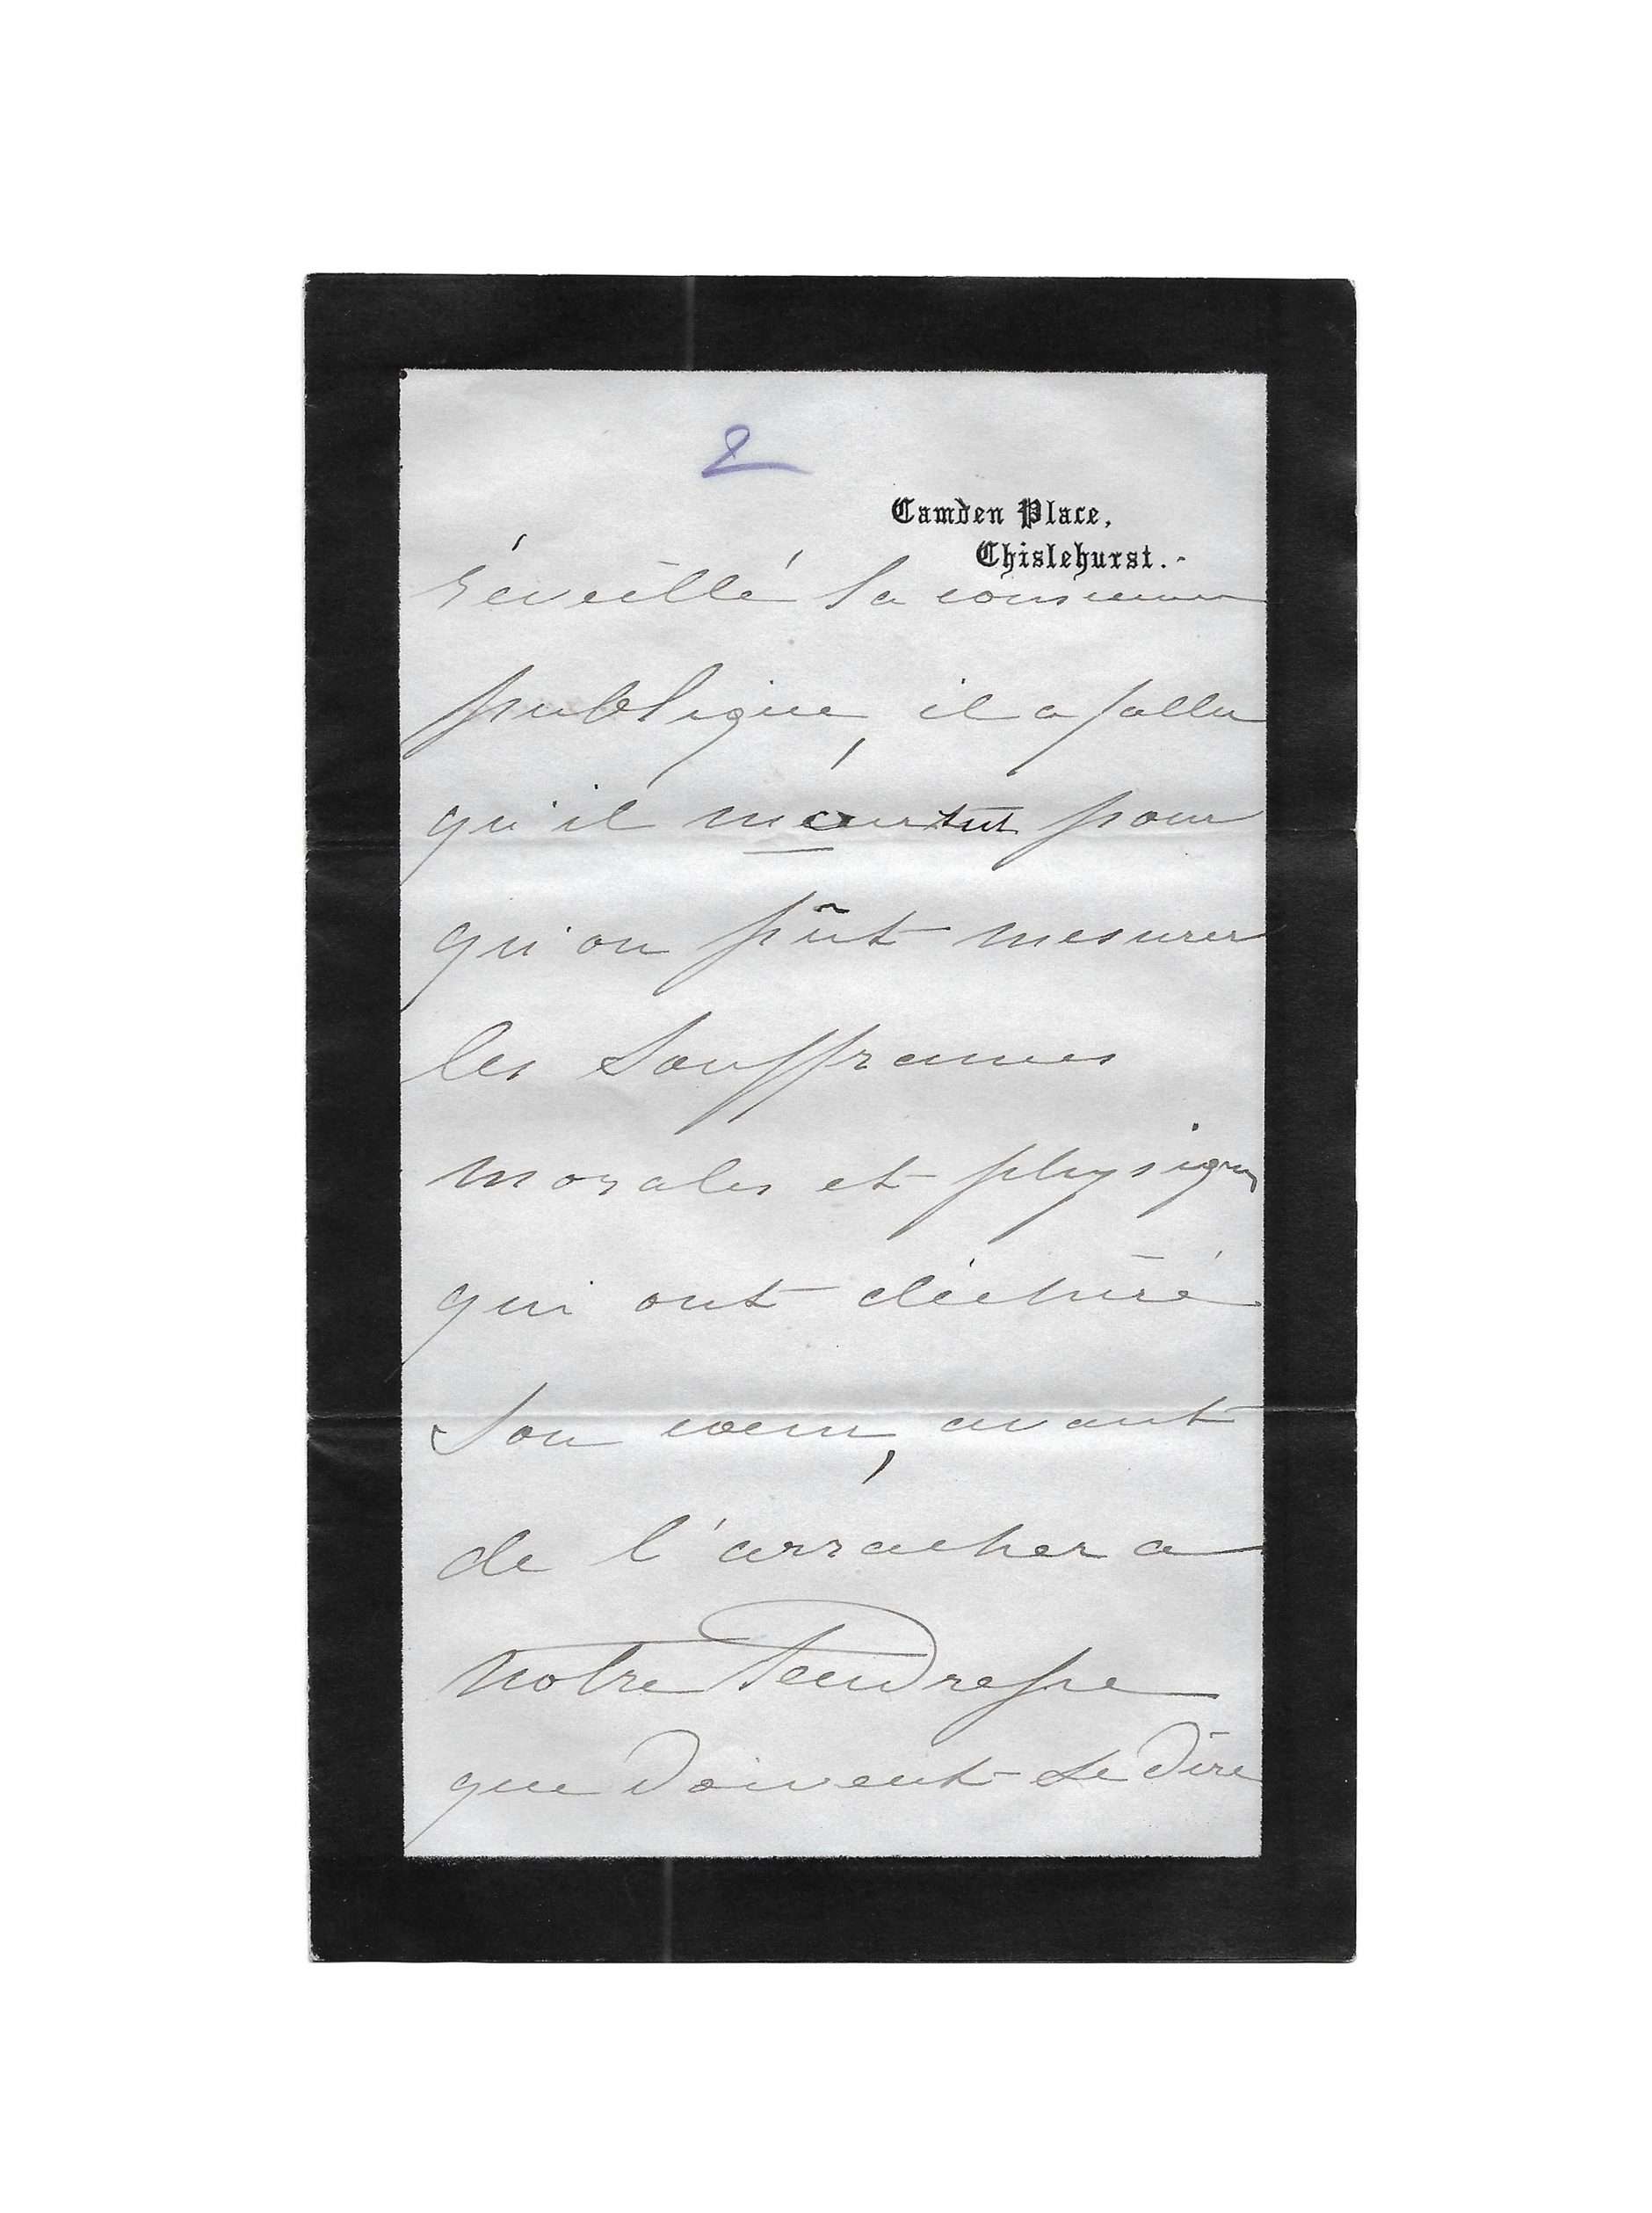 2
Camden Place,
Chislehurst.-
réveillé la conscience
publique, il a fallu
qu'il mourut pour
qu'on pût mesurer
les souffrances
morales et physiques
qui ont déchiré
son cœur, avant
de l'arracher a
notre Tendresse
que doivent se dire